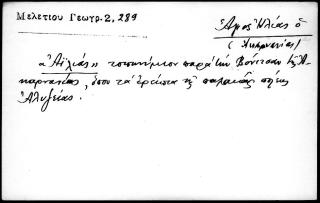 Μελετίου Γεωγρ. 2, 289
Ἅγιος Ἠλίας ὁ
(Ἀκαρνανίας)
"Ἀϊλιάς" τοπωνύμιον παρὰ τὴν Βόνιτσαν τῆς Ἀ-
καρνανίας, ὅπου τὰ ἐρείπια τῆς παλαιᾶς πόλεως
Ἀλυζείας.